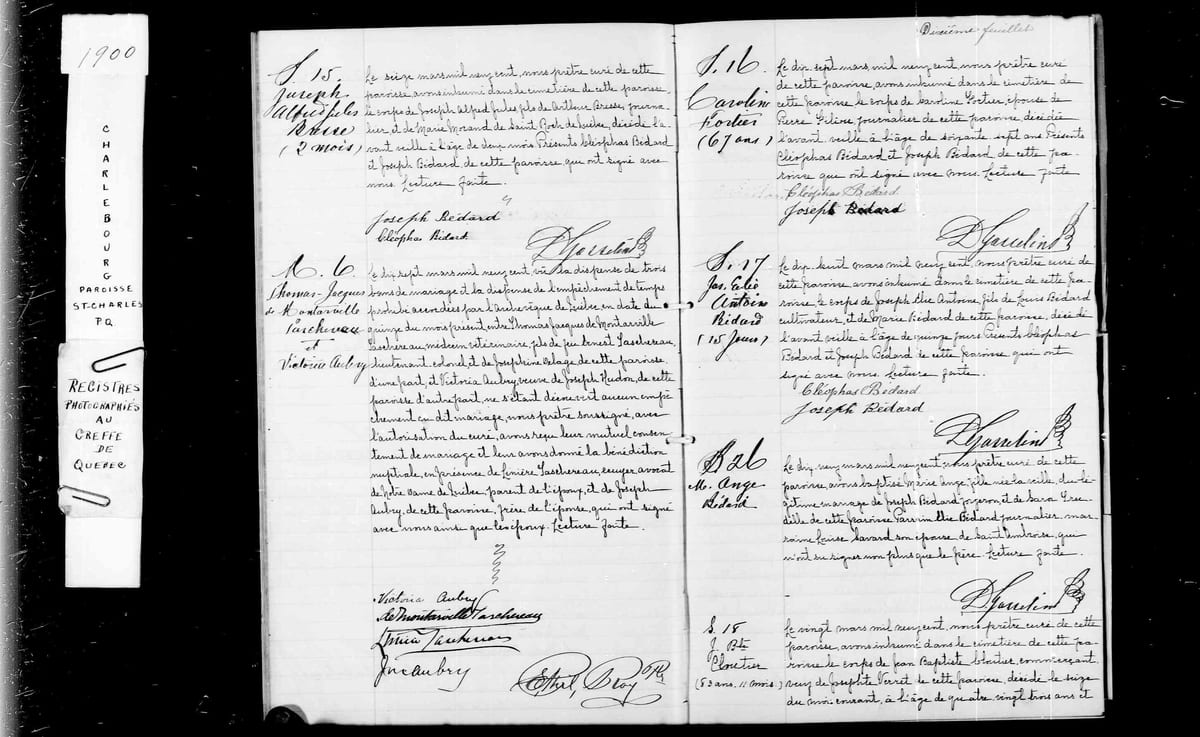 1900
CHARLEBOURG
PAROISSE
ST-CHARLES
P.Q.
REGISTRES
PHOTOGRAPHIÉS
AU
GREFFE
DE
QUÉBEC
S. 15.
Joseph
Alfred Jules
Bresse
(2 mois)
Le seize mars mil neuf cent, nous prêtre curé de cette
paroisse avons inhumé dans le cimetière de cette paroisse
le corps de Joseph Alfred Jules fils de Arthur Bresse, journa-
lier, et de Marie Morand de Saint Roch de Québec, décédé l'a-
vant veille à l'âge de deux mois. Présents Cléophas Bédard
et Joseph Bédard de cette paroisse, qui ont signé avec
nous. Lecture faite.
Joseph Bédard
Cléophas Bédard
D Gosselin Ptr
M. 6
Thomas-Jacques
de Montarville
Taschereau
et
Victoria Aubry
Le dix sept mars mil neuf cent vu la dispense de trois
bans de mariage et la dispense de l'empêchement de temps
prohibé accordées par l'archevêque de Québec en date du
quinze du mois present, entre Thomas Jacques de Montarville
Taschereau, médecin vétérinaire, fils de feu Ernest Taschereau,
lieutenant colonel, et de Joséphine Delage de cette paroisse,
d'une part, et Victoria Aubry, veuve de Joseph Hudon, de cette
paroisse d'autre part, ne s'étant découvert aucun empê-
chement au dit mariage, nous prêtre soussigné, avec
l'autorisation du curé, avons reçu leur mutuel consen-
tement de mariage et leur avons donné la bénédiction
nuptiale, en présence de Linière Taschereau, écuyer, avocat
de Notre Dame de Québec, parent de l'époux, et de Joseph
Aubry, de cette paroisse, frère de l'épouse, qui ont signé
avec nous ainsi que les époux. Lecture faite.
Victoria Aubry
de Montarville Taschereau
Taschereau
Jos Aubry
Roy Ptr
Dixième feuillet
S. 16
Caroline
Fortier
(67 ans)
Le dix sept mars, mil neuf cent, nous prêtre curé
de cette paroisse, avons inhumé dans le cimetière de
cette paroisse le corps de Caroline Fortier, épouse de
Pierre journalier de cette paroisse décédée
l'avant veille à l'âge de soixante sept ans. Présents
Cléophas Bédard et Joseph Bédard de cette pa-
roisse que ont signé avec nous. Lecture faite
Cléophas Bédard
Joseph Bédard
D Gosselin Ptr
S. 17
Jos. Elie
Antoine
Bédard
(15 jours)
Le dix huit mars mil neuf cent, nous prêtre curé de
cette paroisse, avons inhumé dans le cimetière de cette pa-
roisse, le corps de Joseph Elie Antoine, fils de Louis Bédard
cultivateur, et de Marie Bédard de cette paroisse, décédé
l'avant veille à l'âge de quinze jours. Présents Cléophas
Bédard et Joseph Bédard de cette paroisse qui ont
signé avec nous. Lecture faite.
Cléophas Bédard
Joseph Bédard
D Gosselin Ptr
B 26
M. Ange
Bédard
Le dix neuf mars mil neuf cent, nous prêtre curé de cette
paroisse, avons baptisé Marie Ange, fille née la veille, du lé-
gitime mariage de Joseph Bédard forgeron, et de Sara
de cette paroisse. Parrain Elie Bédard journalier mar-
raine Louise Savard son épouse de Saint Ambroise, qui
n'ont su signer non plus que le père. Lecture faite.
D Gosselin Ptr
S. 18
J. Bte
Cloutier
(83 ans. 11 mois.)
Le vingt mars mil neuf cent, nous prêtre curé de cette
paroisse, avons inhumé dans le cimetière de cette pa-
roisse le corps de Jean Baptiste Cloutier, commerçant,
veuf de Josephte Verret de cette paroisse, décédé le seize
du mois courant, à l'âge de quatre vingt trois ans et